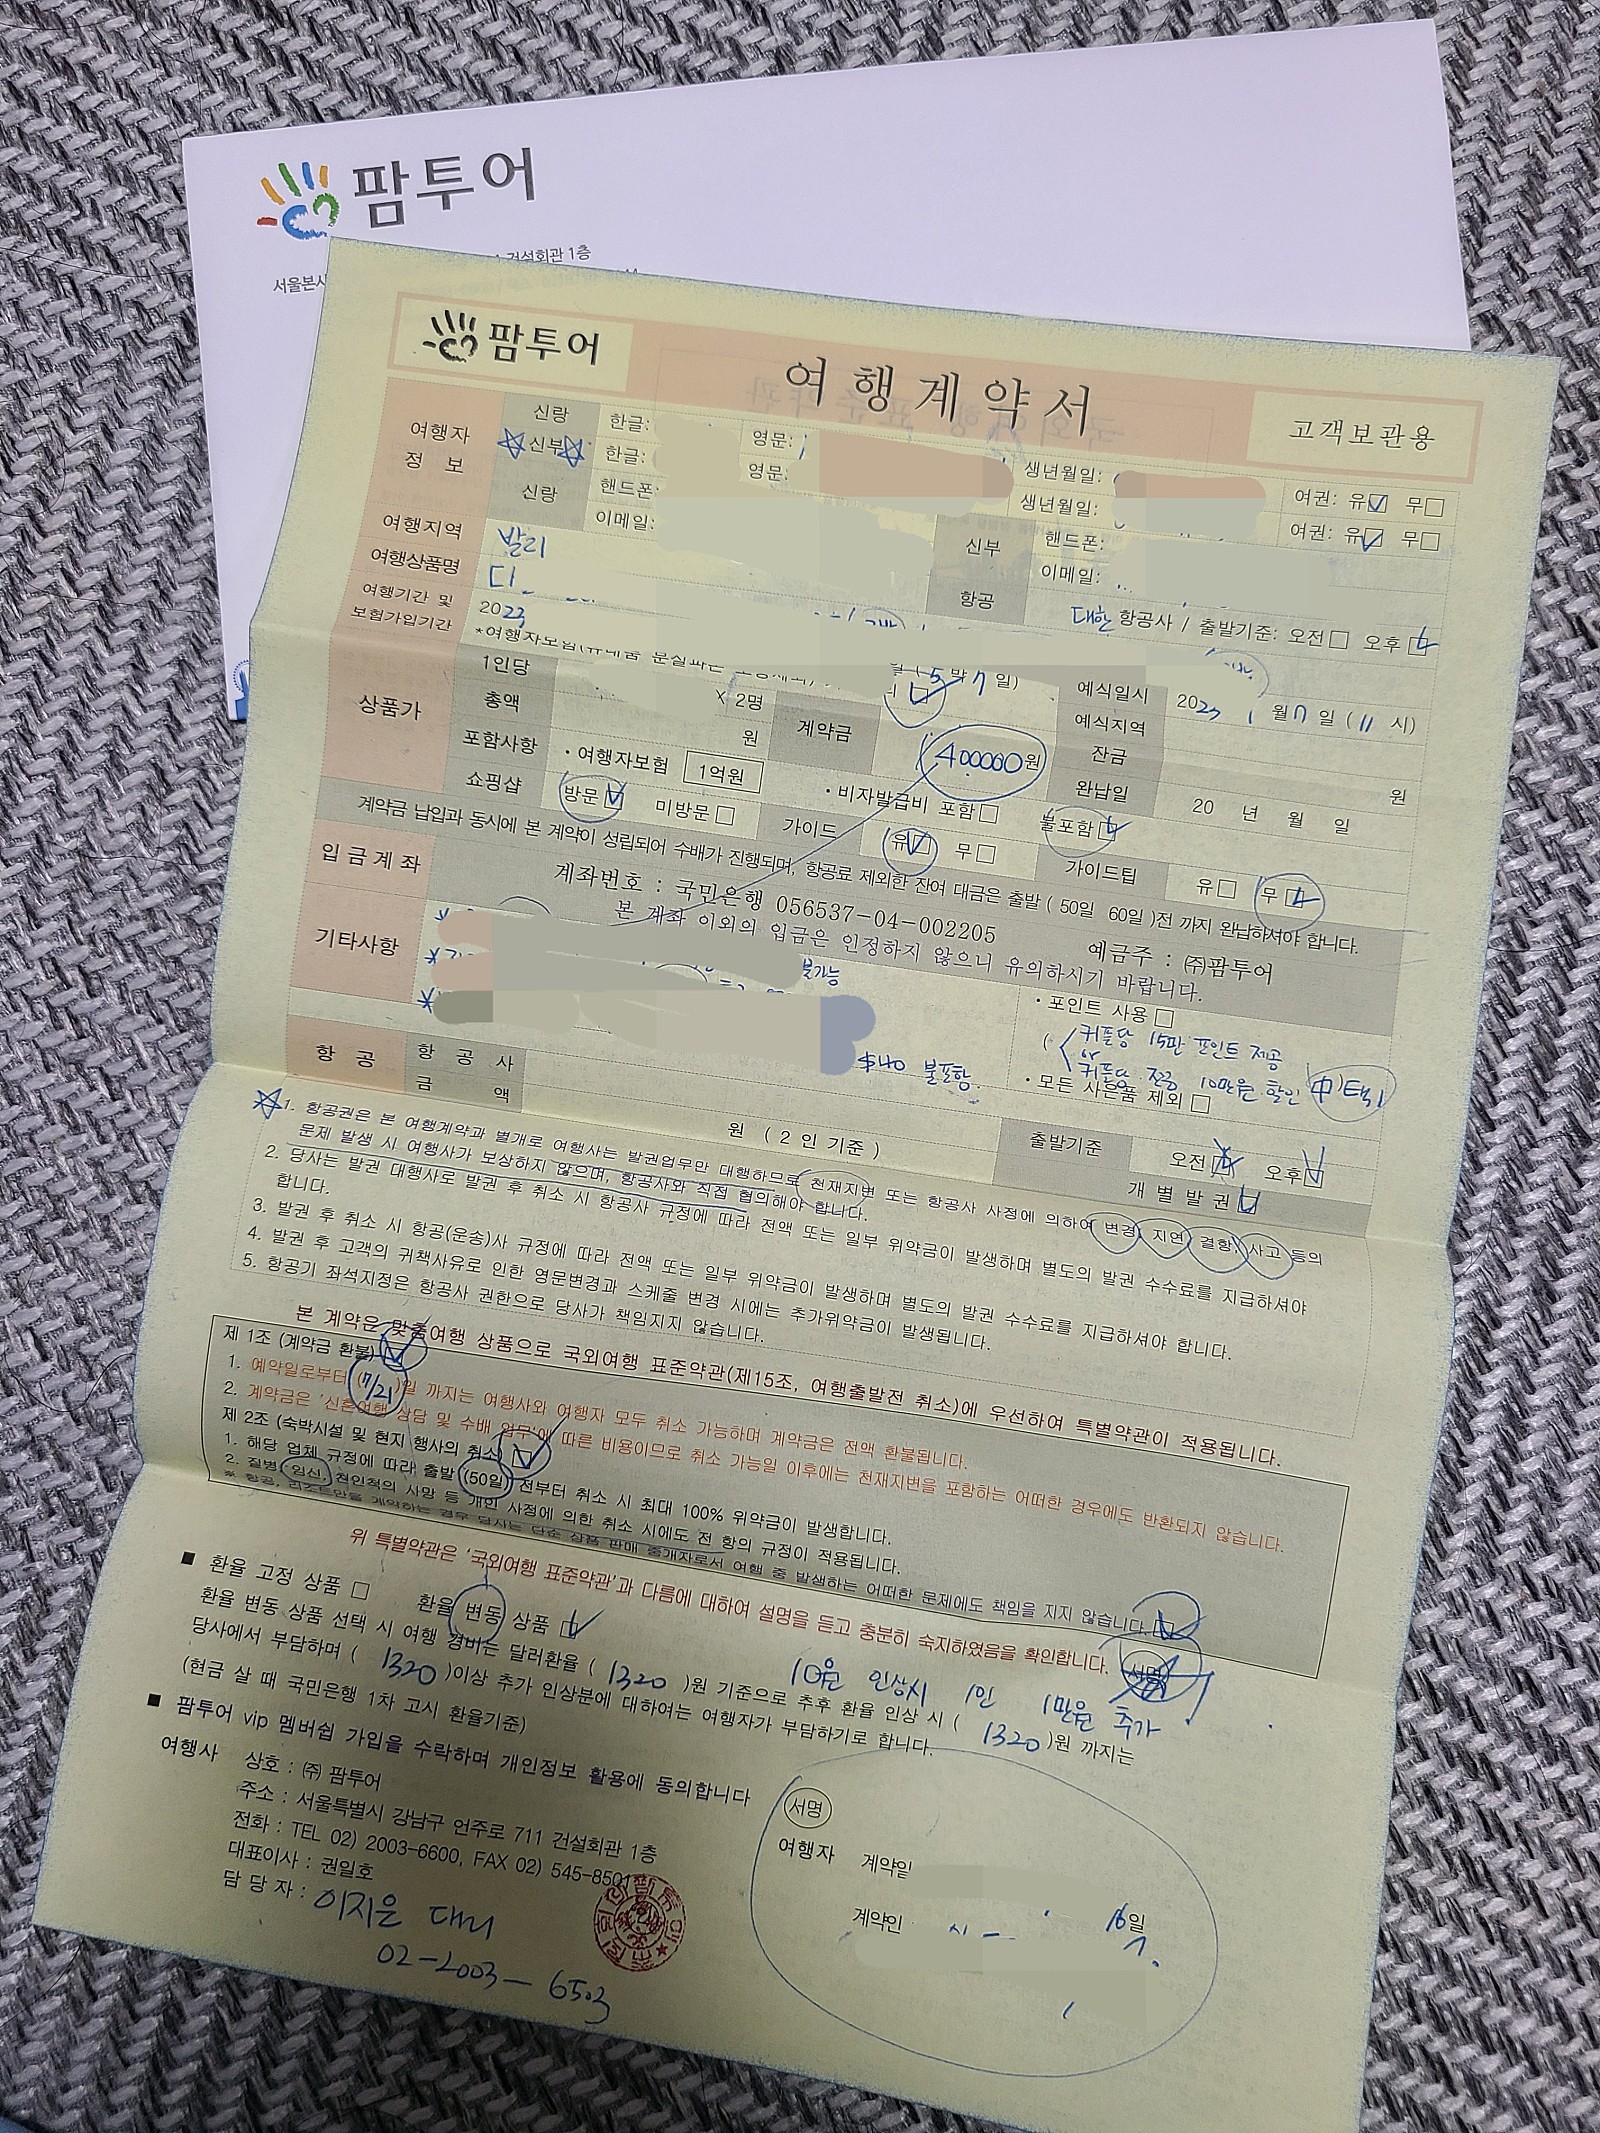 팜투어
건설회관 1층
서울본사
팜투어
여행계약서
고객보관용
여행자 정보
신랑 한글: 영문: 생년월일: 여권: 유 무
신부 한글: 영문: 생년월일: 여권: 유 무
신랑 핸드폰: 신부 핸드폰:
이메일: 이메일:
여행지역 발리 항공 대한 항공사 / 출발기준: 오전 오후
여행상품명 디
여행기간 및 보험가입기간 2023
일 (5박 7일) 예식일시 2023 월 일 (11 시)
상품가 1인당 X 2명 계약금 400000원 예식지역
총액 원 잔금 원
포함사항 · 여행자보험 1억원 · 비자발급비 포함 불포함 완납일 20 년 월 일
쇼핑샵 방문 미방문 가이드 유 무 가이드팁 유 무
계약금 납입과 동시에 본 계약이 성립되어 수배가 진행되며, 항공료 제외한 잔여 대금은 출발 ( 50일 60일 )전 까지 완납하셔야 합니다.
입금계좌 계좌번호 : 국민은행 056537-04-002205 예금주 : ㈜팜투어
본 계좌 이외의 입금은 인정하지 않으니 유의하시기 바랍니다.
기타사항
불가능
$40 불포함
· 포인트 사용
( 커플당 15만 포인트 제공
or
커플당 전금 10만원 할인 中 택1
· 모든 사은품 제외
항공 항공사 출발기준 오전 오후
금액 원 ( 2 인 기준 ) 개별발권
1. 항공권은 본 여행계약과 별개로 여행사는 발권업무만 대행하므로 천재지변 또는 항공사 사정에 의하여 변경, 지연, 결항, 사고 등의
문제 발생 시 여행사가 보상하지 않으며, 항공사와 직접 협의해야 합니다.
2. 당사는 발권 대행사로 발권 후 취소 시 항공사 규정에 따라 전액 또는 일부 위약금이 발생하며 별도의 발권 수수료를 지급하셔야
합니다.
3. 발권 후 취소 시 항공(운송)사 규정에 따라 전액 또는 일부 위약금이 발생하며 별도의 발권 수수료를 지급하셔야 합니다.
4. 발권 후 고객의 귀책사유로 인한 영문변경과 스케줄 변경 시에는 추가위약금이 발생됩니다.
5. 항공기 좌석지정은 항공사 권한으로 당사가 책임지지 않습니다.
본 계약은 맞춤여행 상품으로 국외여행 표준약관(제15조, 여행출발전 취소)에 우선하여 특별약관이 적용됩니다.
제 1조 (계약금 환불)
1. 예약일로부터 (7/21)일 까지는 여행사와 여행자 모두 취소 가능하며 계약금은 전액 환불됩니다.
2. 계약금은 '신혼여행 상담 및 수배 업무'에 따른 비용이므로 취소 가능일 이후에는 천재지변을 포함하는 어떠한 경우에도 반환되지 않습니다.
제 2조 (숙박시설 및 현지 행사의 취소)
1. 해당 업체 규정에 따라 출발 (50일) 전부터 취소 시 최대 100% 위약금이 발생합니다.
2. 질병, 임신, 친인척의 사망 등 개인 사정에 의한 취소 시에도 전 항의 규정이 적용됩니다.
* 항공, 리조트만을 계약하는 경우 당사는 단순 상품 판매 중개자로서 여행 중 발생하는 어떠한 문제에도 책임을 지지 않습니다.
위 특별약관은 '국외여행 표준약관'과 다름에 대하여 설명을 듣고 충분히 숙지하였음을 확인합니다. 서명
■ 환율 고정 상품 환율 변동 상품
환율 변동 상품 선택 시 여행 경비는 달러환율 ( 1320 )원 기준으로 추후 환율 인상 시 ( 1320 )원 까지는
10원 인상시 1인 1만원 추가
당사에서 부담하며 ( 1320 )이상 추가 인상분에 대하여는 여행자가 부담하기로 합니다.
(현금 살 때 국민은행 1차 고시 환율기준)
■ 팜투어 vip 멤버쉽 가입을 수락하며 개인정보 활용에 동의합니다
여행사 상호 : ㈜ 팜투어
주소 : 서울특별시 강남구 언주로 711 건설회관 1층
전화 : TEL 02) 2003-6600, FAX 02) 545-8501
대표이사 : 권일호
담당자 : 이지은 대리
02-2003-6503
서명
여행자 계약일
16일
계약인